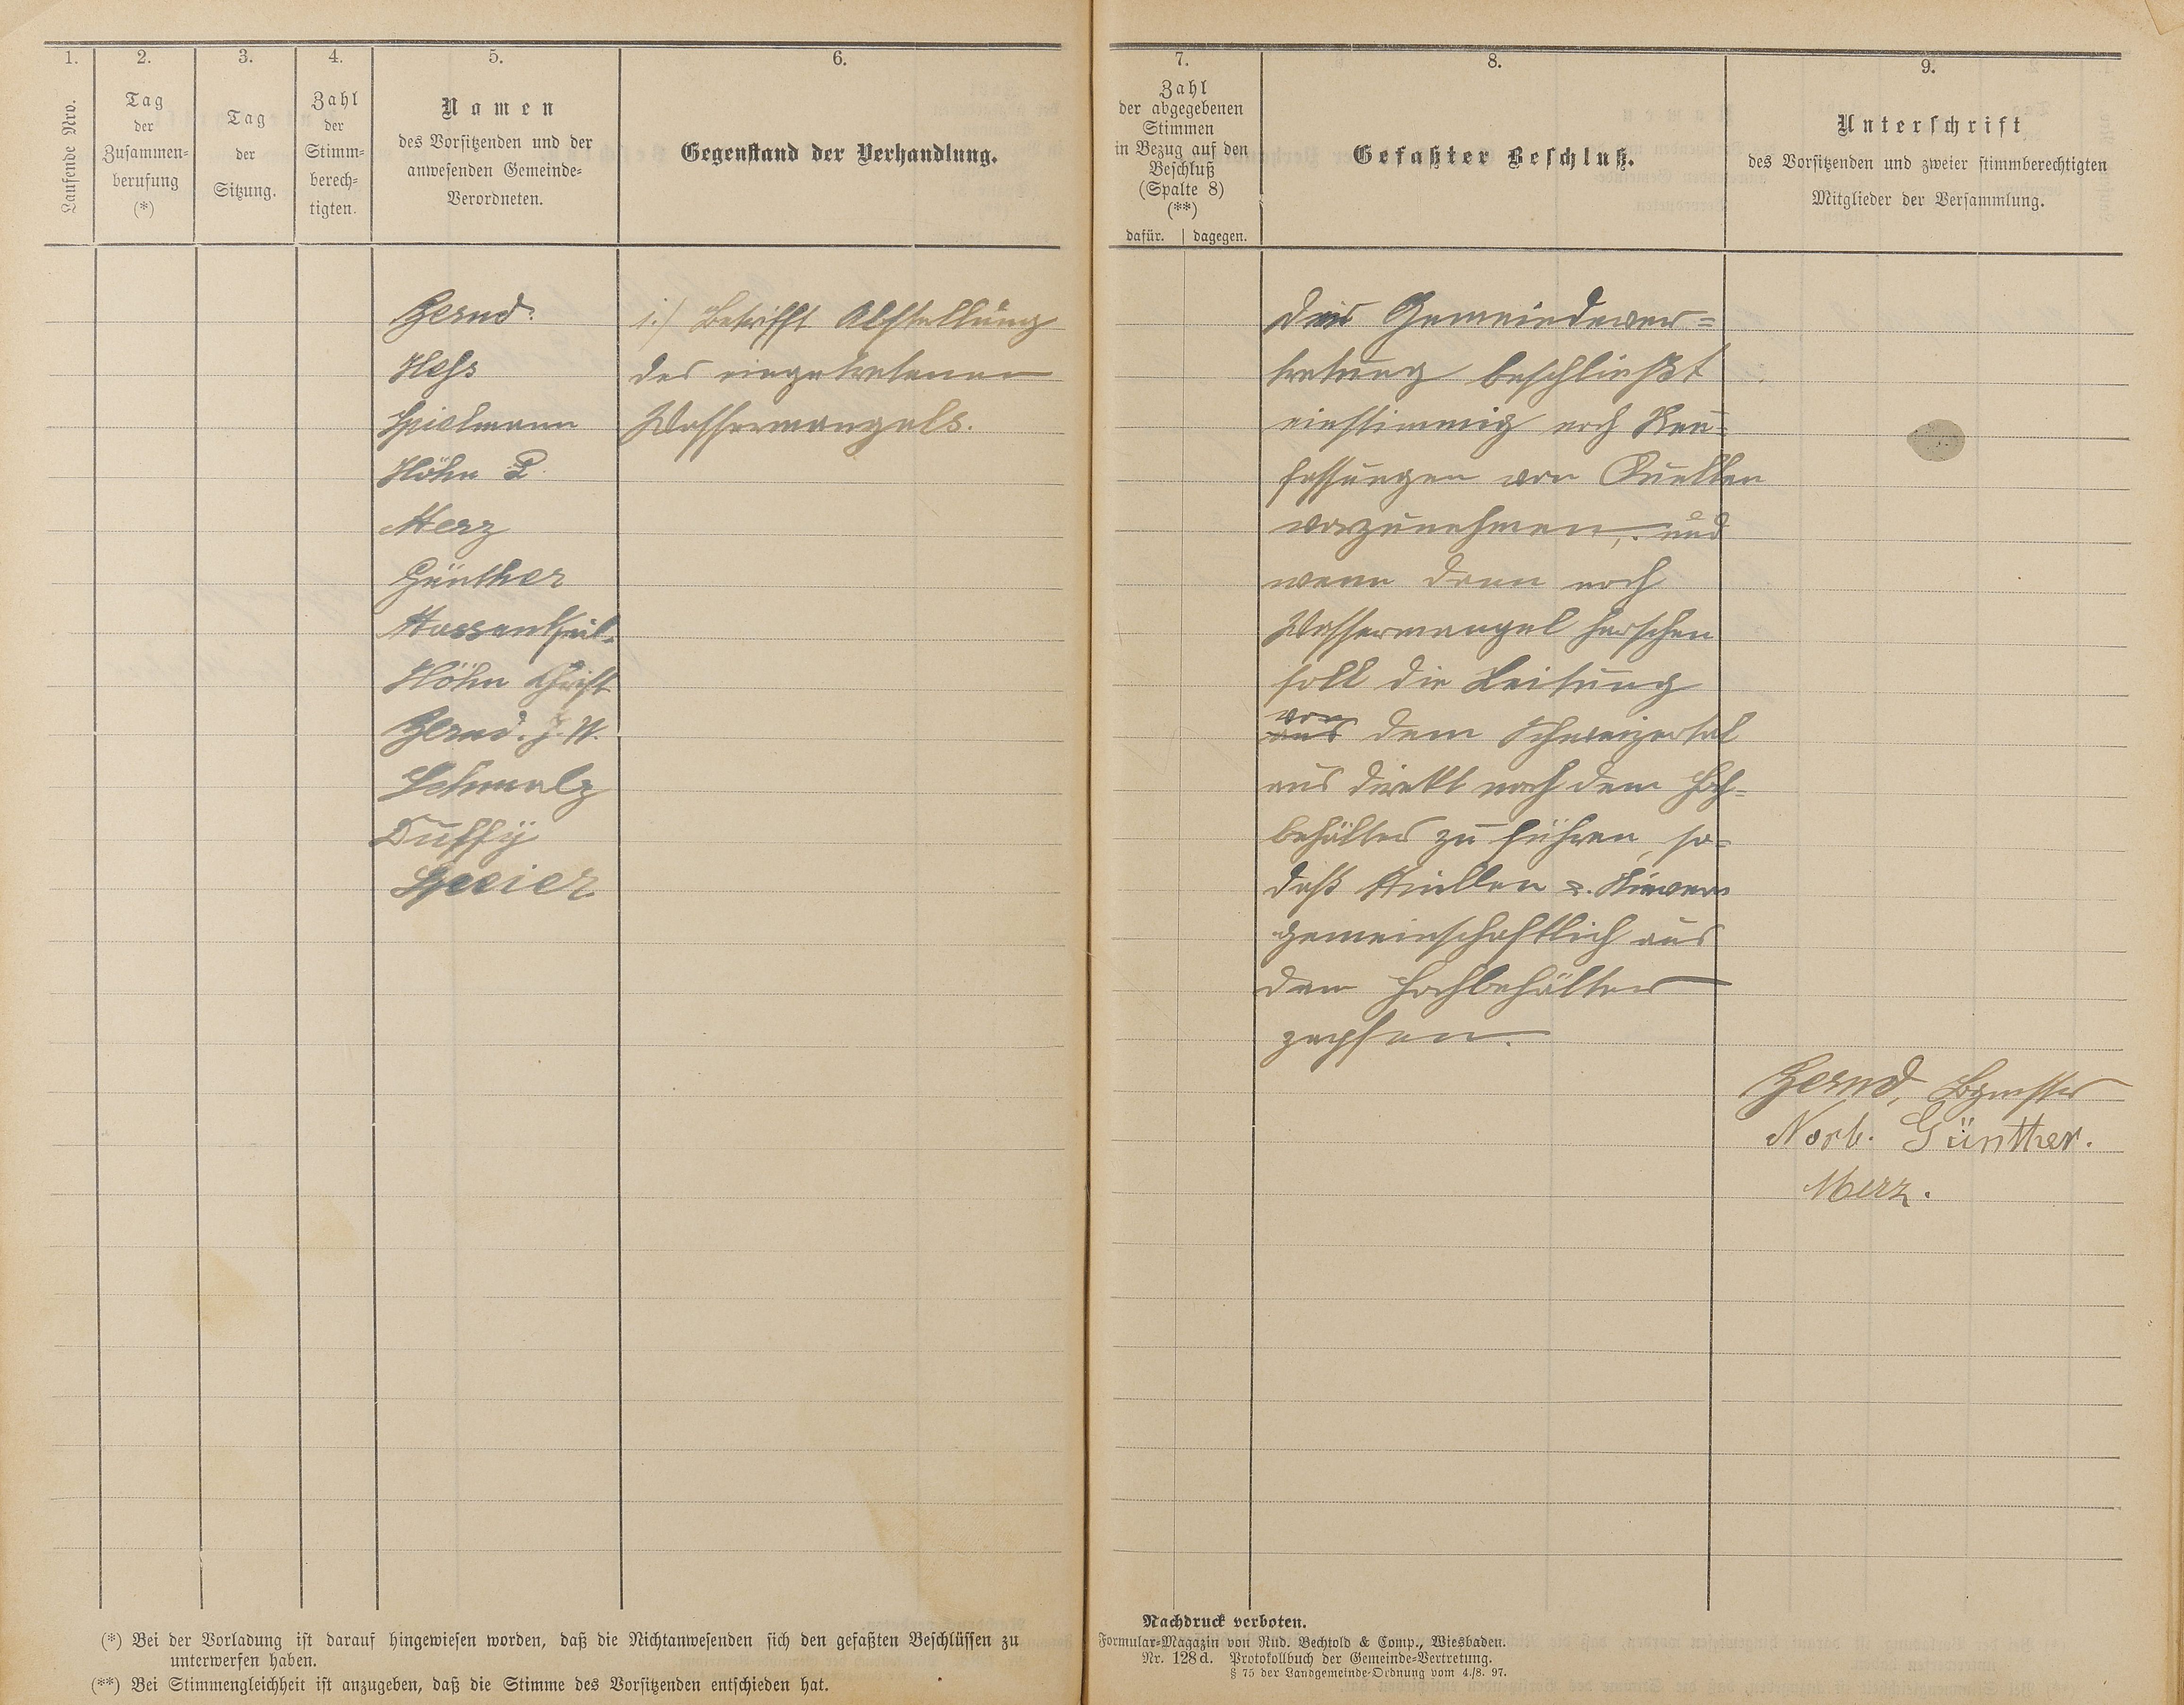 1.
Laufende Nro.
2.
Tag
der
Zusammen-
berufung
(*)
3.
Tag
der
Sitzung.
4.
Zahl
der
Stimm-
berech-
tigten.
5.
Namen
des Vorsitzenden und der
anwesenden Gemeinde-
Verordneten.
6.
Gegenstand der Verhandlung.
Gernd.
Hess
Spielmann
Höhn P.
Merz
Günther
Massentheil.
Höhn Christ
Gernd. J. W.
Schmalz
Duffÿ
Speier
1.) Betrifft Abstellung
des eingetretenen
Wassermangels.
(*) Bei der Vorladung ist darauf hingewiesen worden, daß die Nichtanwesenden sich den gefaßten Beschlüssen zu
unterwerfen haben.
(**) Bei Stimmengleichheit ist anzugeben, daß die Stimme des Vorsitzenden entschieden hat.
7.
Zahl
der abgegebenen
Stimmen
in Bezug auf den
Beschluß
(Spalte 8)
(**)
dafür. dagegen.
8.
Gefaßter Beschluß.
9.
Unterschrift
des Vorsitzenden und zweier stimmberechtigten
Mitglieder der Versammlung.
Die Gemeindever=
tretung beschließt
einstimmig noch Neu=
fassungen von Quellen
vorzunehmen, und
wenn dann noch
Wassermangel herschen
soll die Leitung
von
aus dem Schweizertal
aus direkt nach dem Hoch=
behälter zu führen, so=
daß &. Nievern
gemeinschaftlich aus
dem Hochbehälter
zapfen.
Gernd, Bgmstr
Norb. Günther.
Merz.
Nachdruck verboten.
Formular-Magazin von Rud. Bechtold & Comp., Wiesbaden.
Nr. 128d. Protokollbuch der Gemeinde-Vertretung.
§ 75 der Landgemeinde-Ordnung vom 4./8. 97.